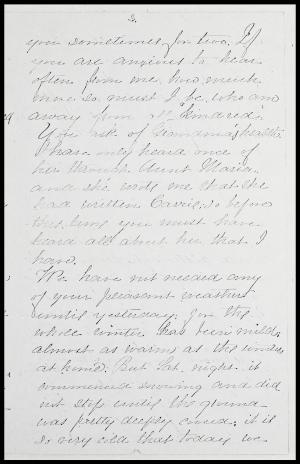 2.
you sometimes for two. If
you are anxious to hear
often from me, how much
more so must I be, who am
away from all kindred.
You ask of Grandma's health
I have only heard once of
her through Aunt Maria
and she wrote me that she
had written Carrie, so before
this time you must have
heard all about her that I
have.
We have not needed any
of your pleasant weather
until yesterday. For the
whole winter has been mild,
almost as warm as the winters
at home. But Sat. night it
commenced snowing and did
not stop until the ground
was pretty deeply covered; it is
so very cold that today we